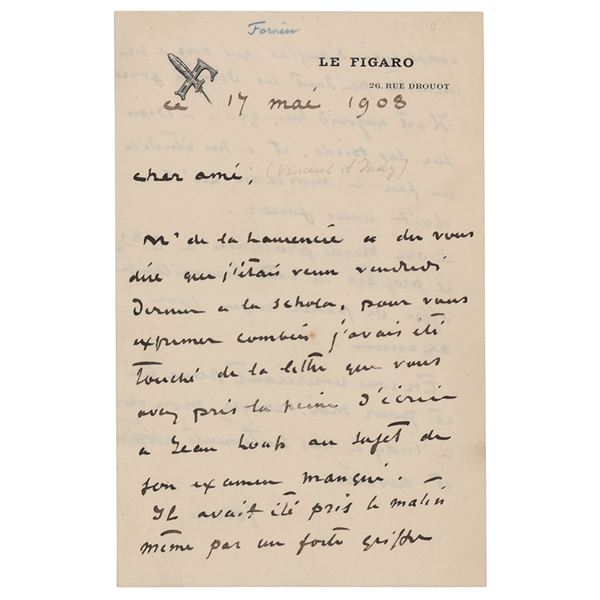 Forain
LE FIGARO
26. RUE DROUOT
ce 17 mai 1908
cher ami, (Vincent d'Indy)
Mr de la Laurencie a du vous
dire que j'étais venu vendredi
dernier a la schola, pour vous
exprimer combien j'avais été
touché de la lettre que vous
avez pris la peine d'écrire
a Jean Loup au sujet de
son examen manqué.
Il avait été pris le matin
même par un forte grippe